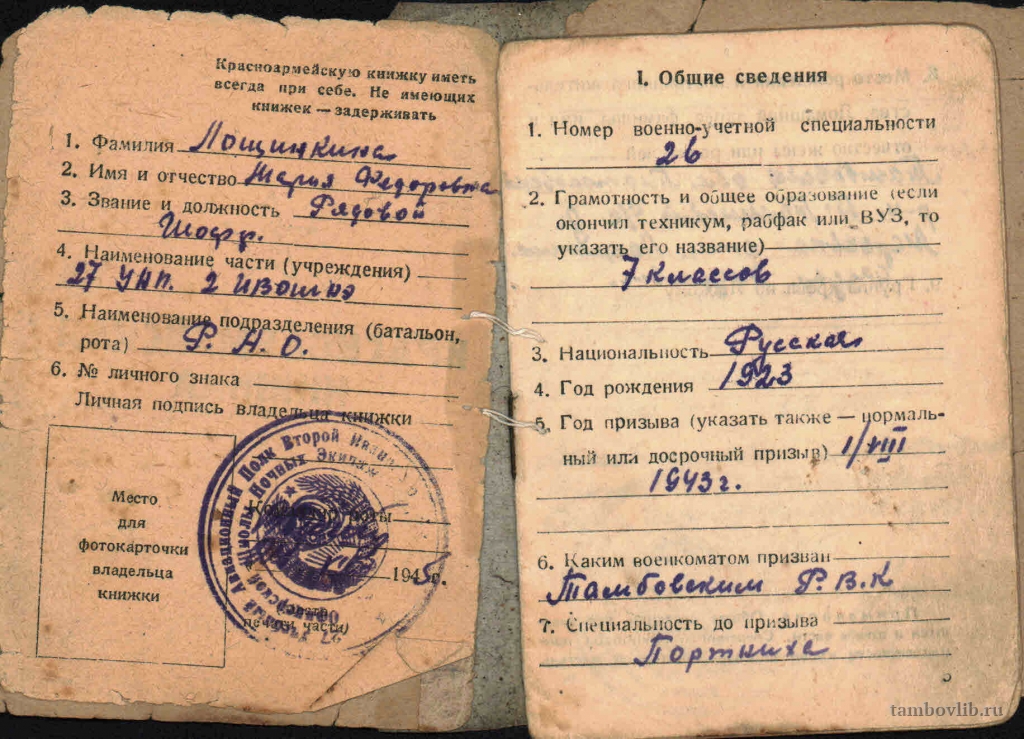 Красноармейскую книжку иметь
всегда при себе. Не имеющих
книжек — задерживать
1. Фамилия Лощинкина
2. Имя и отчество Мария Федоровна
3. Звание и должность Рядовой
Шофр.
4. Наименование части (учреждения)
27 УАП. 2 ИВОШНЭ
5. Наименование подразделения (батальон,
рота) Р. А. О.
6. № личного знака
Личная подпись владельца книжки
Место
для
фотокарточки
владельца
книжки
Авиационный Полк Второй
Офицерской Школы Ночных Экипаж
роты
194 г.
печати части)
I. Общие сведения
1. Номер военно-учетной специальности
26
2. Грамотность и общее образование (если
окончил техникум, рабфак или ВУЗ, то
указать его название)
7 классов
3. Национальность Русская
4. Год рождения 1923
5. Год призыва (указать также — нормаль-
ный или досрочный призыв) 1/VIII
1943 г.
6. Каким военкоматом призван
Тамбовским Р.В.К
7. Специальность до призыва
Портниха
tambovlib.ru